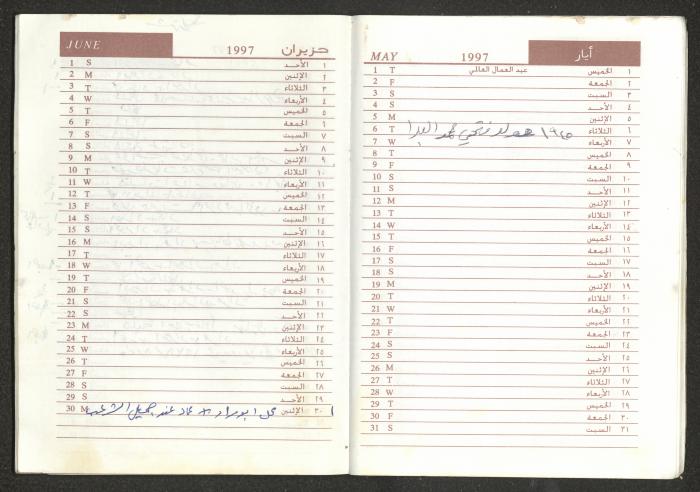 MAY 1997 أيار
1 T عيد العمال العالمي الخميس ١
2 F الجمعة ٢
3 S السبت ٣
4 S الأحد ٤
5 M الإثنين ٥
6 T مولد فتحي محمد الثلاثاء ٦
7 W الأربعاء ٧
8 T الخميس ٨
9 F الجمعة ٩
10 S السبت ١٠
11 S الأحد ١١
12 M الإثنين ١٢
13 T الثلاثاء ١٣
14 W الأربعاء ١٤
15 T الخميس ١٥
16 F الجمعة ١٦
17 S السبت ١٧
18 S الأحد ١٨
19 M الإثنين ١٩
20 T الثلاثاء ٢٠
21 W الأربعاء ٢١
22 T الخميس ٢٢
23 F الجمعة ٢٣
24 S السبت ٢٤
25 S الأحد ٢٥
26 M الإثنين ٢٦
27 T الثلاثاء ٢٧
28 W الأربعاء ٢٨
29 T الخميس ٢٩
30 F الجمعة ٣٠
31 S السبت ٣١
JUNE 1997 حزيران
1 S الأحد ١
2 M الإثنين ٢
3 T الثلاثاء ٣
4 W الأربعاء ٤
5 T الخميس ٥
6 F الجمعة ٦
7 S السبت ٧
8 S الأحد ٨
9 M الإثنين ٩
10 T الثلاثاء ١٠
11 W الأربعاء ١١
12 T الخميس ١٢
13 F الجمعة ١٣
14 S السبت ١٤
15 S الأحد ١٥
16 M الإثنين ١٦
17 T الثلاثاء ١٧
18 W الأربعاء ١٨
19 T الخميس ١٩
20 F الجمعة ٢٠
21 S السبت ٢١
22 S الأحد ٢٢
23 M الإثنين ٢٣
24 T الثلاثاء ٢٤
25 W الأربعاء ٢٥
26 T الخميس ٢٦
27 F الجمعة ٢٧
28 S السبت ٢٨
29 S الأحد ٢٩
30 M ابو مراد عند جميل الإثنين ٣٠